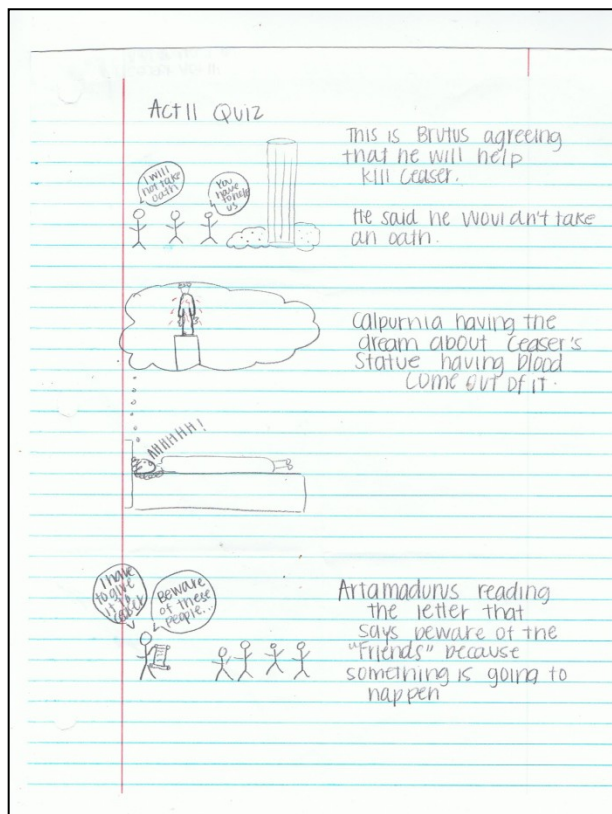 Act II Quiz
I will
not take
oath
You
have
to help
us
This is Brutus agreeing
that he will help
kill Ceaser.
He said he wouldn't take
an oath.
Calpurnia having the
dream about Ceaser's
Statue having blood
come out of it.
AHHHHH!
I have
to give
it to
Beware
of these
people...
Artamadurus reading
the letter that
says beware of the
"Friends" because
something is going to
happen